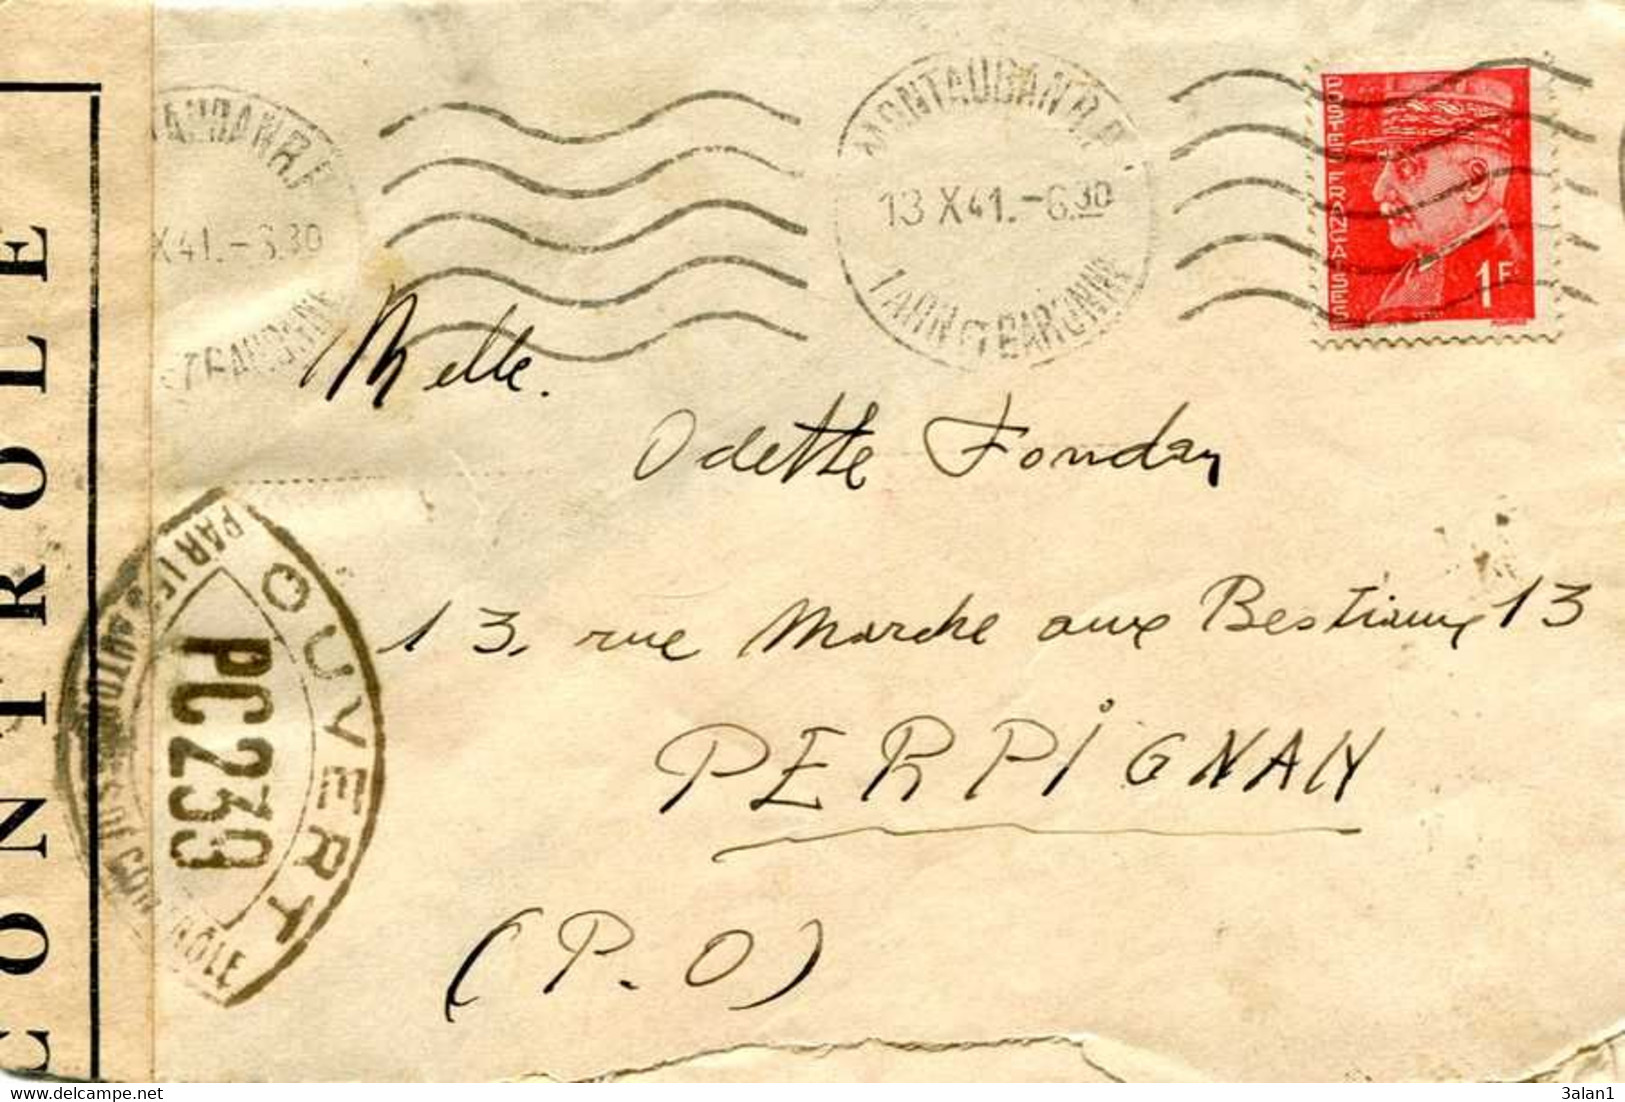 CONTROLE
MONTAUBAN R.P.
13 X 41.-6.30
TARN ET GARONNE
TAUBAN R.P
X 41.-6.30
POSTES FRANÇAISES
1F
Melle.
Odette Fondan
13, rue Marche aux Bestiaux 13
PERPIGNAN
(P.O)
OUVERT
PC239
PAR LES AUTORITÉS DE CONTRÔLE
www.delcampe.net
3alan1